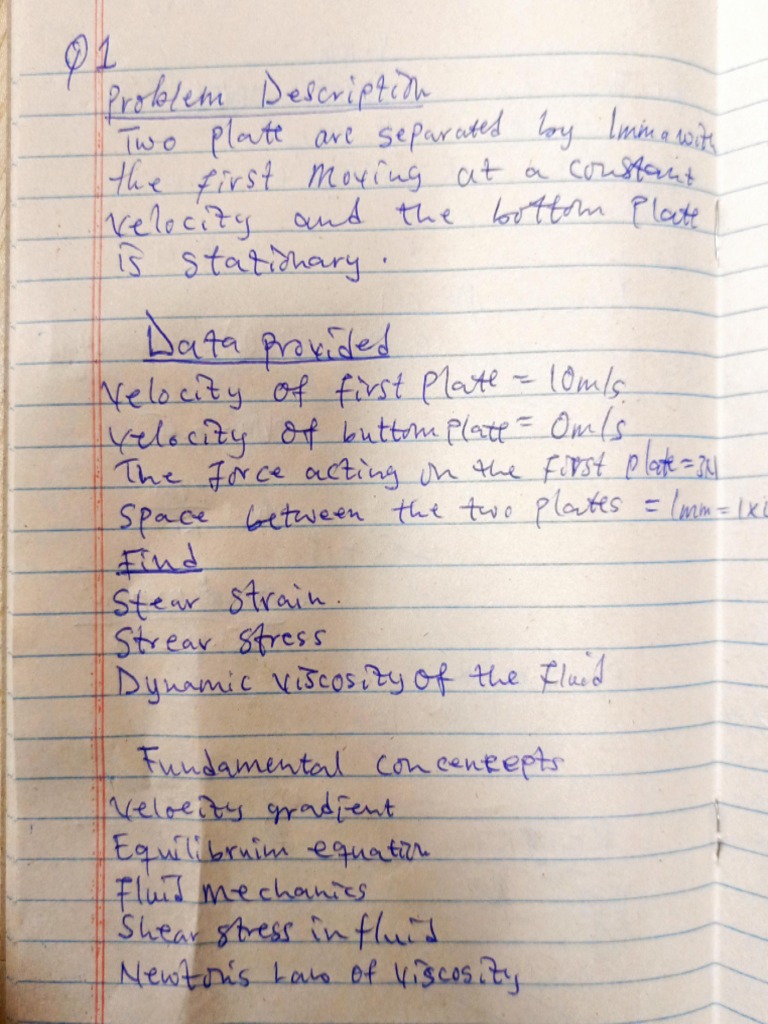 Q1
Problem Description
Two plate are separated by 1mm with
the first moving at a constant
velocity and the bottom plate
is stationary.
Data provided
velocity of first plate = 10m/s
velocity of buttom plate = 0m/s
The force acting on the first plate = 3N
Space between the two plates = 1mm = 1x
Find
Stear strain.
Strear stress
Dynamic viscosity of the fluid
Fundamental concenkepts
Velocity gradient
Equilibruim equation
Fluid mechanics
Shear stress in fluid
Newton's Law of Viscosity